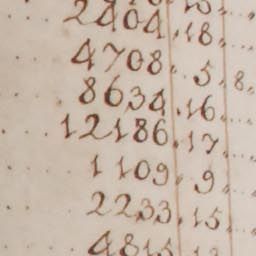 2404.18.
4708.5.8.
8634.16.
12186.17.
1109.9.
2233.15.
4815